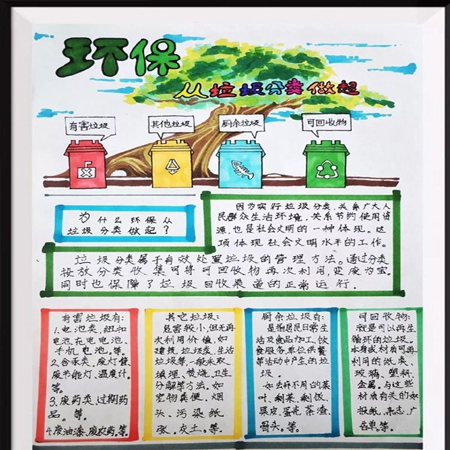 环保
从垃圾分类做起
有害垃圾
其他垃圾
厨余垃圾
可回收物
为什么环保从
垃圾分类做起？
因为实行垃圾分类，关系广大人
民群众生活环境，关系节约使用资
源，也是社会文明的一种体现。这
项体现社会文明水平的工作。
垃圾分类属于有效处置垃圾的管理方法。通过分类
投放分类收集可将可回收物再次利用，变废为宝，
同时也保障了垃圾回收渠道的正常运行。
有害垃圾有：
1.电池类，纽扣
电池，充电电池、
手机电池，等。
2.含汞类，废灯管、
废节能灯、温度计、
等。
3.废药类，过期药
品，等。
4.废油漆、废农药，等。
其它垃圾：
危害较小，但无再
次利用价值，如
建筑垃圾类，生活
垃圾等一般采取
填埋、焚烧、卫生
分解等方法，如
宠物粪便、烟
头、污染纸
张、灰土，等。
厨余垃圾有：
是指居民日常生
活及食品加工、饮
食服务、单位供餐
等活动中产生的垃
圾。
如丢弃不用的菜
叶、剩菜、剩饭、
果皮、蛋壳、茶渣、
骨头，等。
可回收物有：
就是可以再生
循环的垃圾。
本身或材质可再
利用的纸类、
玻璃、塑料、
金属。与这些
材质有关的如
报纸、杂志、广
告单，等。